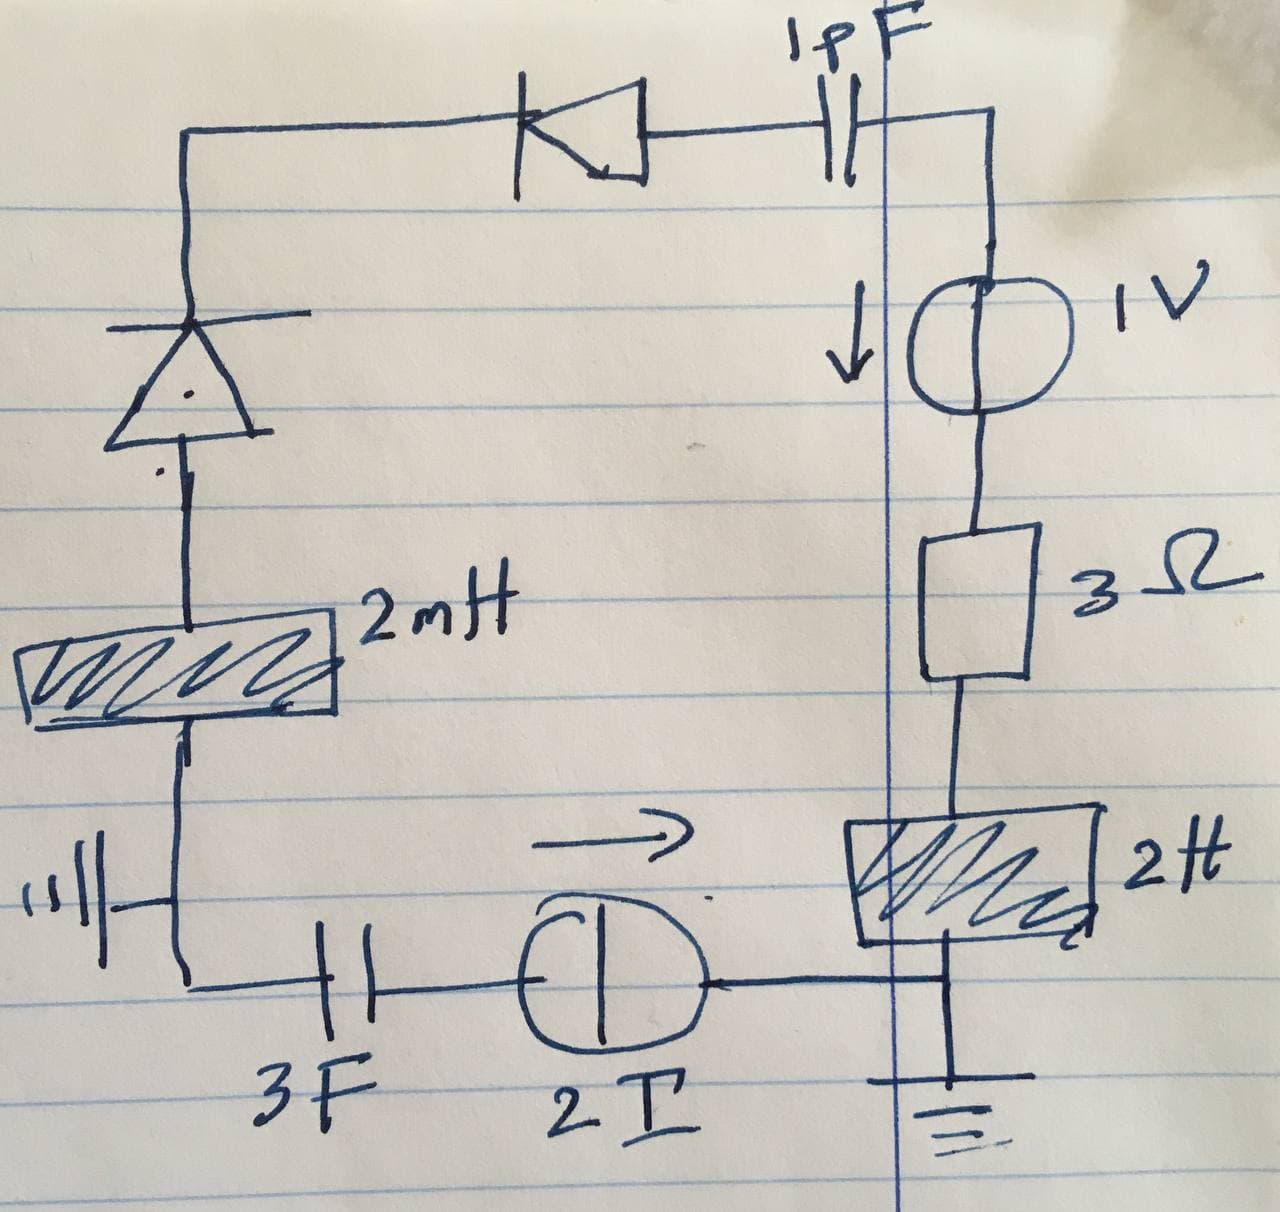 1pF
1V
3Ω
2mH
2H
3F
2I